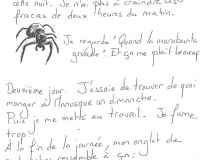 cette nuit. Je n'ai pas à craindre les
fracas de deux heures du matin.
Je regarde "Quand la marabunta
gronde". Et ça me plaît beaucoup
Deuxième jour. J'essaie de trouver de quoi
manger à Manosque un dimanche.
Puis je me mets au travail. Je fume
trop.
A la fin de la journée, mon onglet de
ressemble à ça :